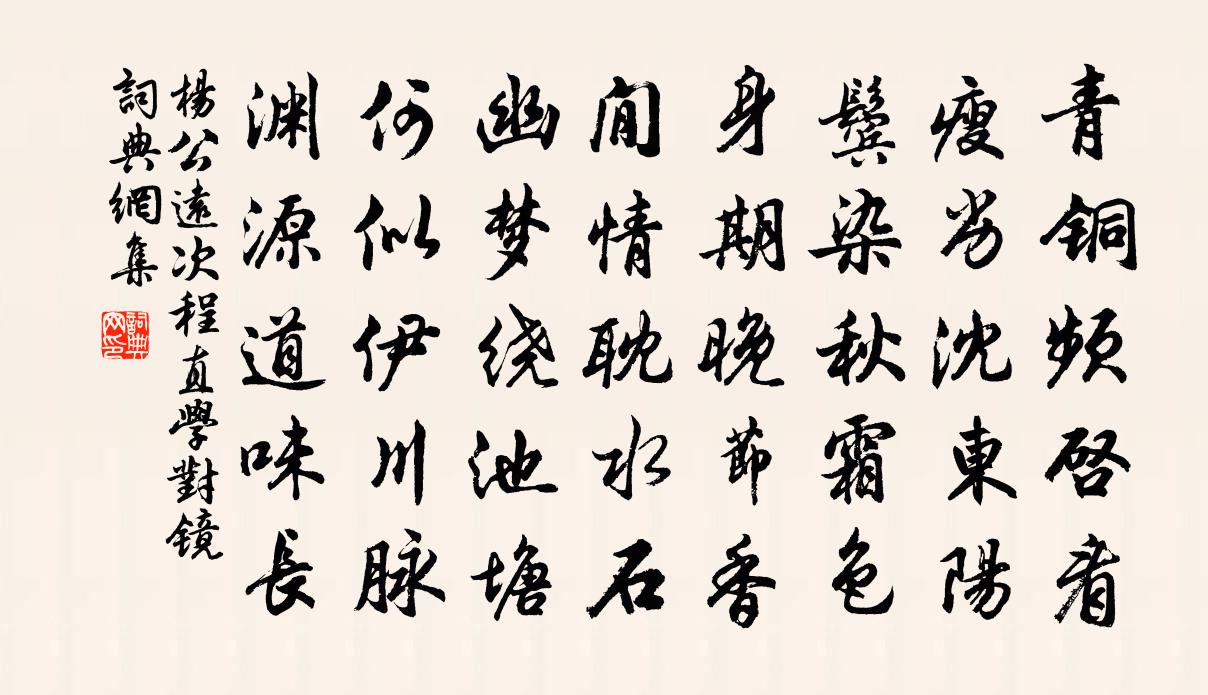 青铜频启看
瘦劣沈東陽
鬓染秋霜色
身期晚節香
閒情耽水石
幽梦绕池塘
何似伊川脉
渊源道味長
楊公遠次程直學對鏡
詞典網集
詞典网印